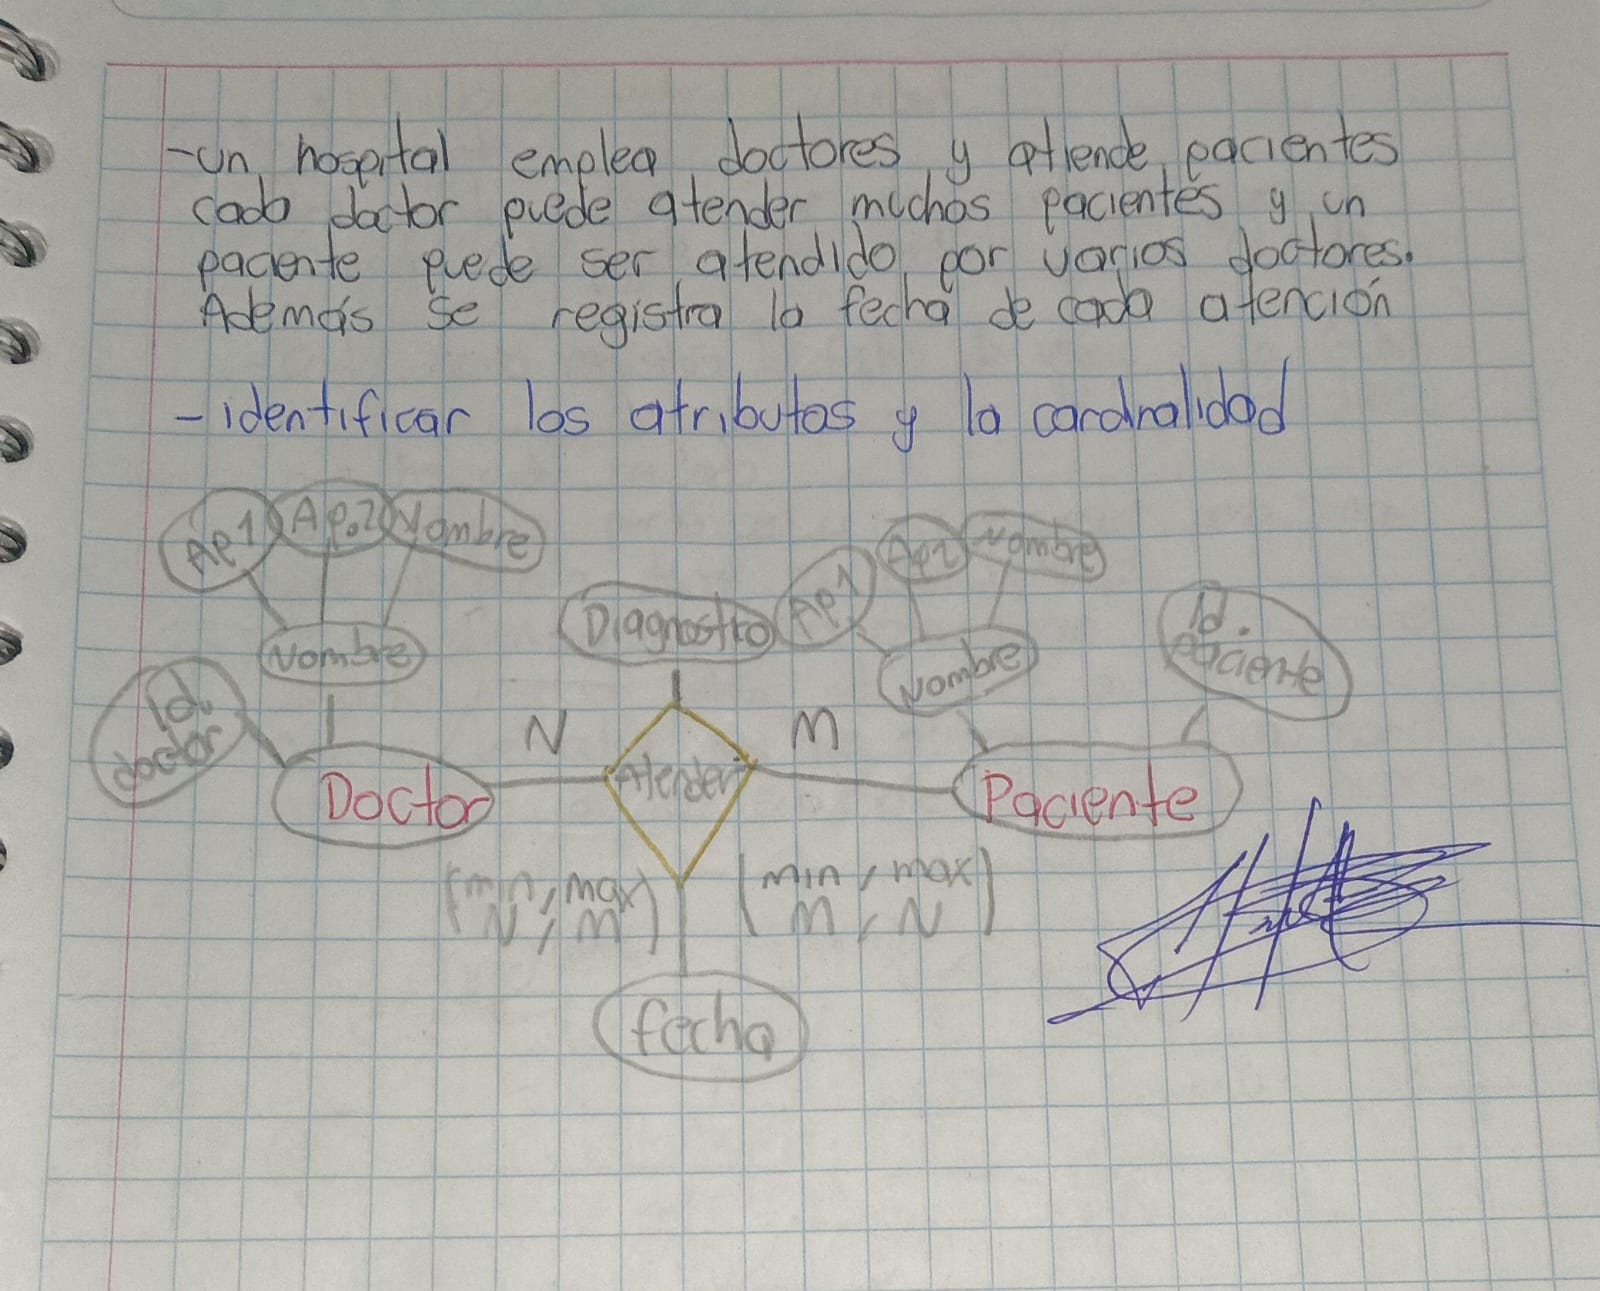 -un hospital emplea doctores y atiende pacientes
cada doctor puede atender muchos pacientes y un
paciente puede ser atendido por varios doctores.
Además se registra la fecha de cada atención
-identificar los atributos y la cardnalidad
Ap1 Ap.2 Nombre
Ap1 Ap2 Nombre
Diagnostico
Nombre
Nombre
Id. Paciente
Id. doctor
N
M
Doctor
Atender
Paciente
(min, max)
N, M
(min, max)
M, N
fecha